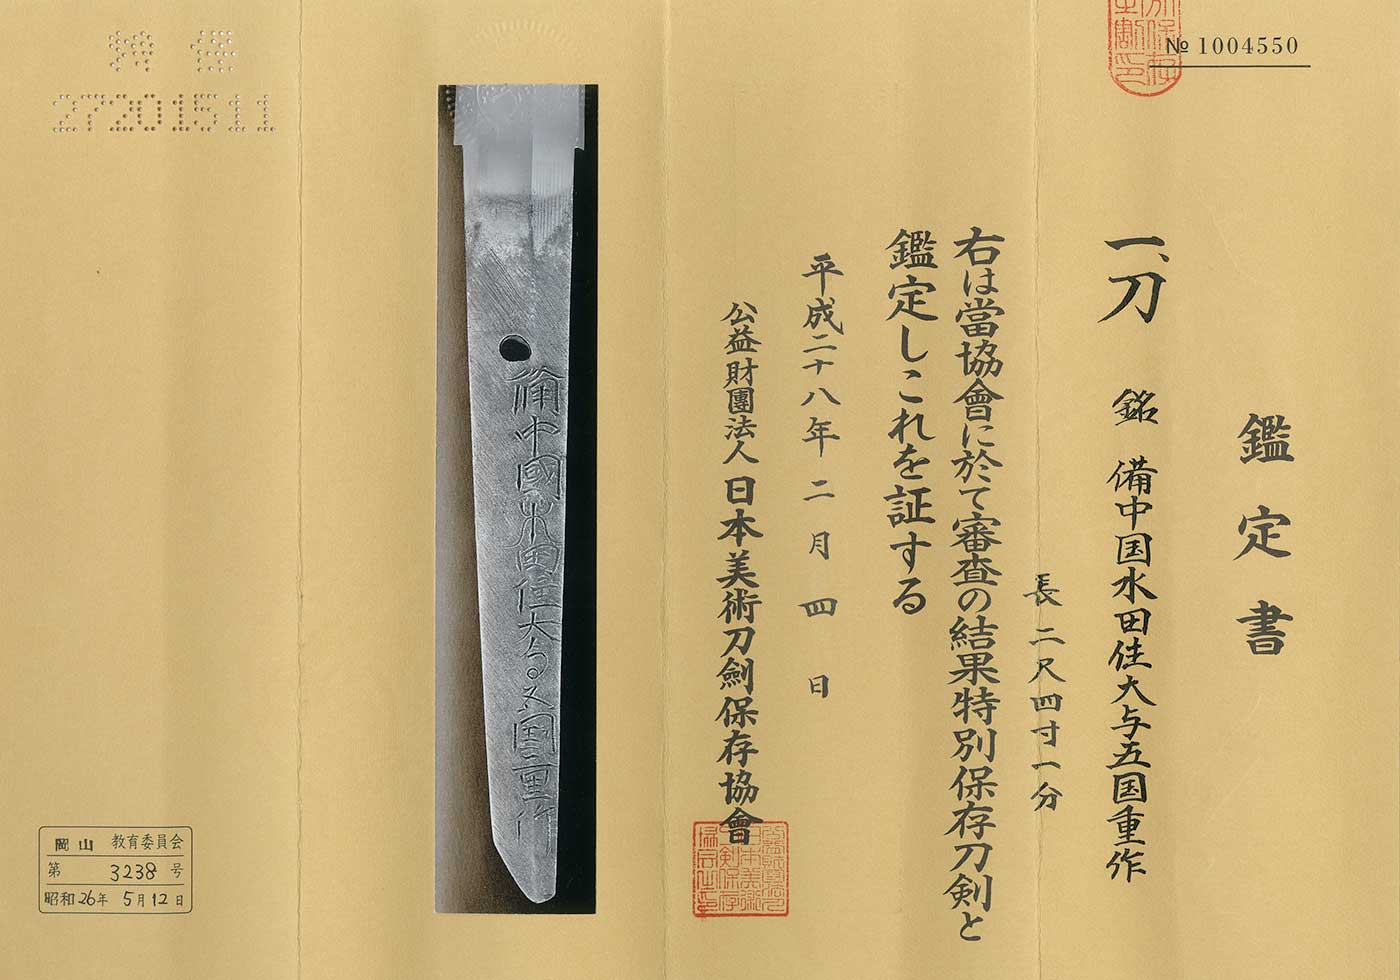 № 1004550
鑑定書
一、刀 銘 備中国水田住大与五国重作
長 二尺四寸一分
右は當協會に於て審査の結果特別保存刀剣と
鑑定しこれを証する
平成二十八年二月四日
公益財團法人日本美術刀劍保存協會
備中國水田住大与五国重作
特 保
27201511
岡山 教育委員会
第 3238 号
昭和26年 5月12日